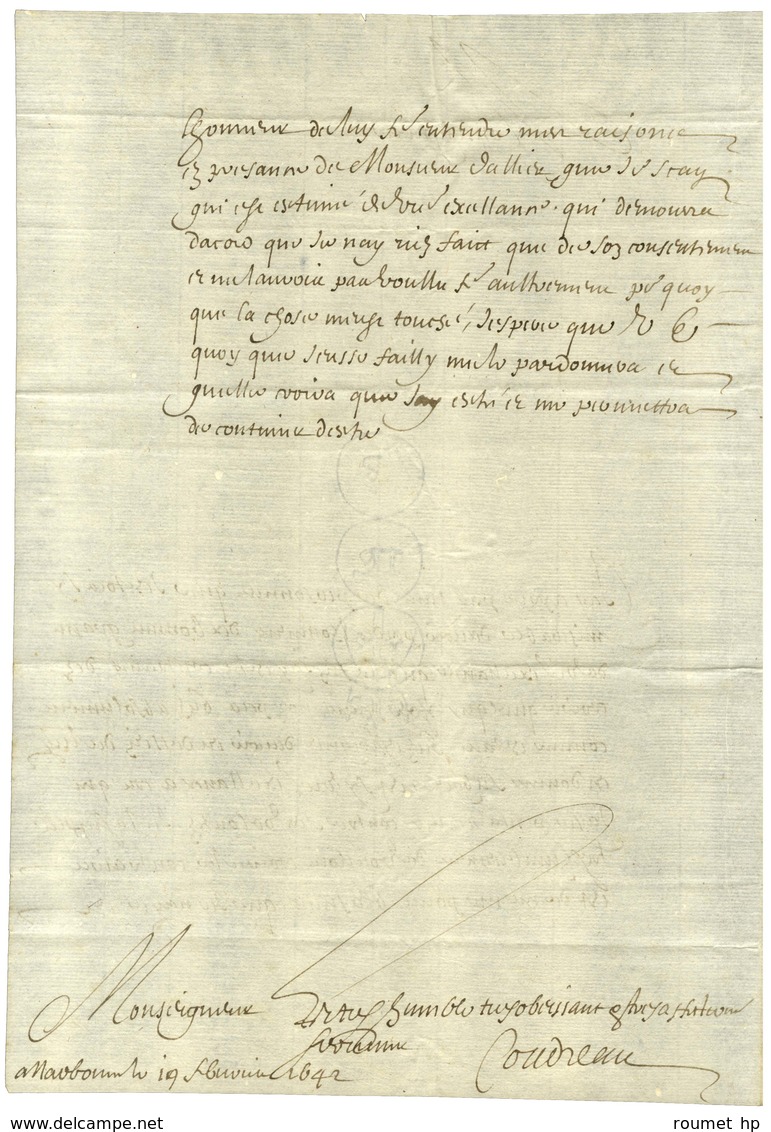 honneur de luy fe entendre mes raisons
en presance de Monsieur dallies que Je scay
qui est estimé de Vre exellance. qui demourra
dacord que Je nay rien faict que de son consentement
et ne lauroit pas voullu fe aultrement
que la chose meust touché, Jespere que V E
quoy que Jeusse failly me le pardonnera et
quelle croira que Jay esté et me permettra
de continuer destre
Monseigneur
Vre tres humble tres obeissant & tres affectionné
serviteur
Coudreau
a Narbonne le 19 febvrier 1642
www.delcampe.net
roumet hp